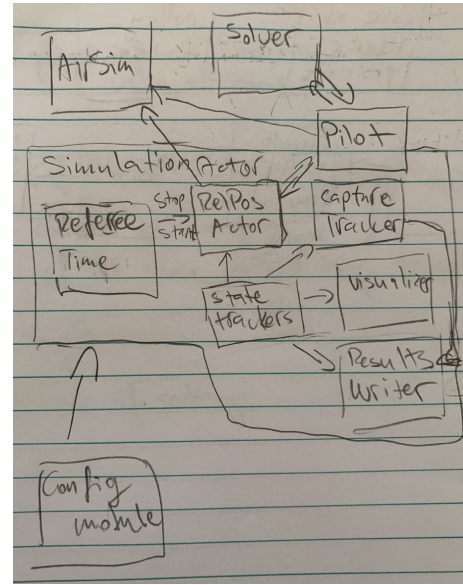 AirSim
Solver
Pilot
Simulation Actor
Referee
Time
stop
start
RelPos
Actor
Capture
Tracker
state
trackers
visualizer
Results
Writer
Config
module